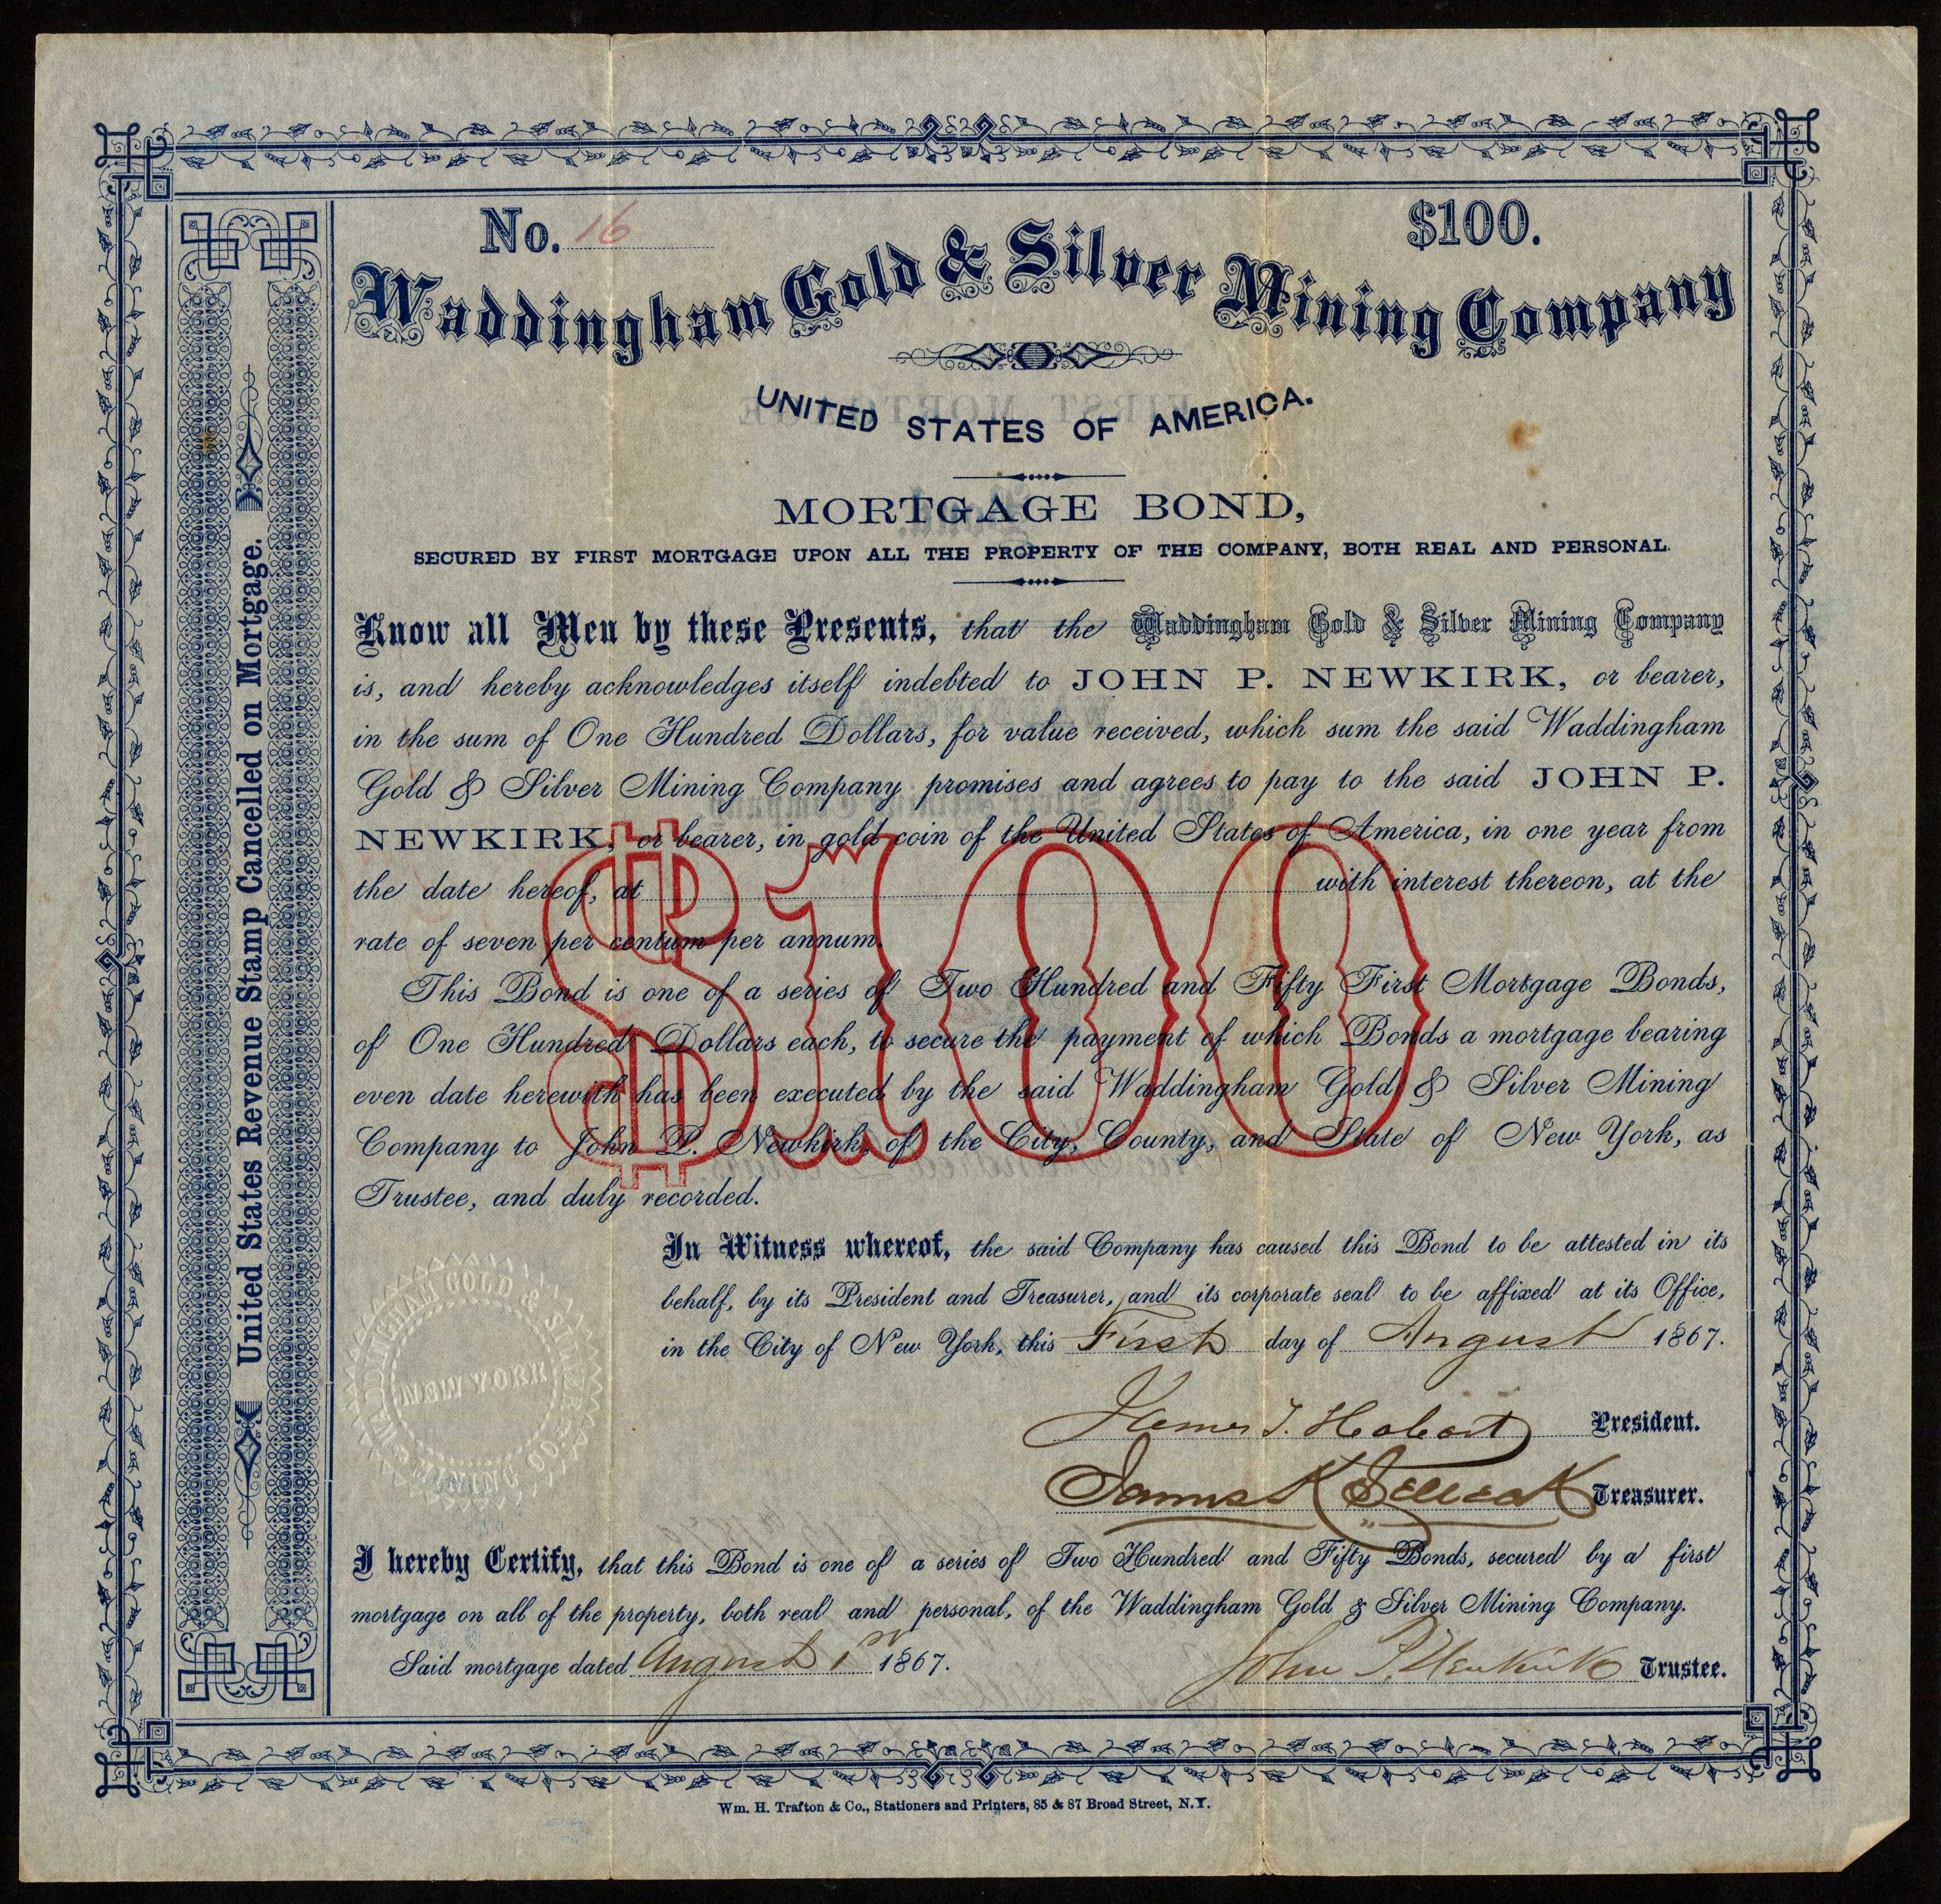 No. 16
$100.
Waddingham Gold & Silver Mining Company
UNITED STATES OF AMERICA.
MORTGAGE BOND,
SECURED BY FIRST MORTGAGE UPON ALL THE PROPERTY OF THE COMPANY, BOTH REAL AND PERSONAL.
Know all Men by these Presents, that the Waddingham Gold & Silver Mining Company
is, and hereby acknowledges itself indebted to JOHN P. NEWKIRK, or bearer,
in the sum of One Hundred Dollars, for value received, which sum the said Waddingham
Gold & Silver Mining Company promises and agrees to pay to the said JOHN P.
NEWKIRK, or bearer, in gold coin of the United States of America, in one year from
the date hereof, at with interest thereon, at the
rate of seven per centum per annum.
This Bond is one of a series of Two Hundred and Fifty First Mortgage Bonds,
of One Hundred Dollars each, to secure the payment of which Bonds a mortgage bearing
even date herewith has been executed by the said Waddingham Gold & Silver Mining
Company to John P. Newkirk, of the City, County, and State of New York, as
Trustee, and duly recorded.
$100
In Witness whereof, the said Company has caused this Bond to be attested in its
behalf, by its President and Treasurer, and its corporate seal to be affixed at its Office,
in the City of New York, this First day of August 1867.
James T. Hobart President.
James K Selleck Treasurer.
WADDINGHAM GOLD & SILVER MINING CO.
NEW YORK
I hereby Certify, that this Bond is one of a series of Two Hundred and Fifty Bonds, secured by a first
mortgage on all of the property, both real and personal, of the Waddingham Gold & Silver Mining Company.
Said mortgage dated August 1st 1867.
John P. Newkirk Trustee.
United States Revenue Stamp Cancelled on Mortgage.
Wm. H. Trafton & Co., Stationers and Printers, 85 & 87 Broad Street, N.Y.